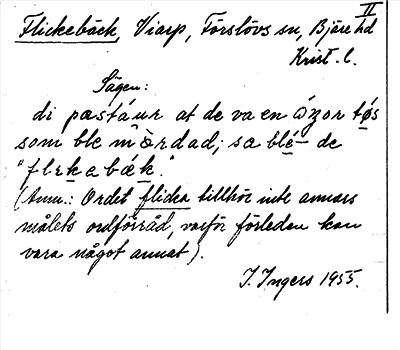 II
Flickebäck, Viarp, Förslövs sn, Bjäre hd
Krist. l.
Sägen:
di pastáur at de va en
som ble mördad; sa blé de
"flekabák."
(Anm.: Ordet flicka tillhör inte annars
målets ordförråd, varför förleden kan
vara något annat).
I. Ingers 1955.